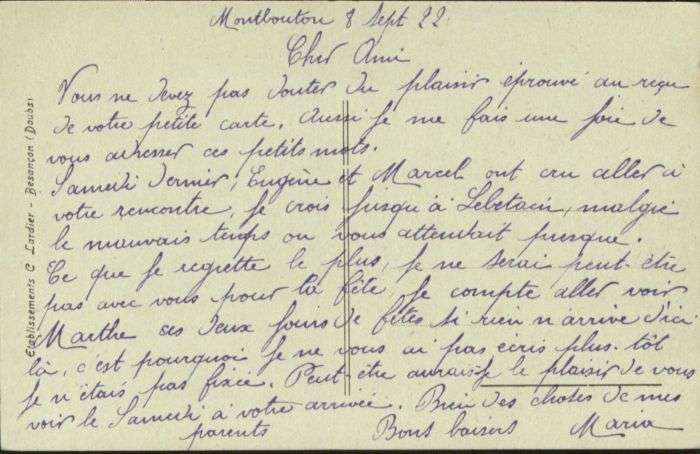 Montbouton 8 Sept 22
Cher Ami
Vous ne devez pas douter du plaisir éprouvé au reçu
de votre petite carte. Aussi je me fais une joie de
vous adresser ces petits mots.
Samedi dernier, Eugène et Marcel ont cru aller à
votre rencontre, je crois jusqu'à Lebetain, malgré
le mauvais temps on vous attendait presque.
Ce que je regrette le plus, je ne serai peut-être
pas avec vous pour la fête, je compte aller voir
Marthe ses deux jours de fêtes si rien n'arrive d'ici
là, c'est pourquoi je ne vous ai pas écris plus tôt
je n'étais pas fixée. Peut-être aurais je le plaisir de vous
voir le Samedi à votre arrivée. Bien des choses de mes
parents Bons baisers Maria
Etablissements C Lardier - Besançon (Doubs)